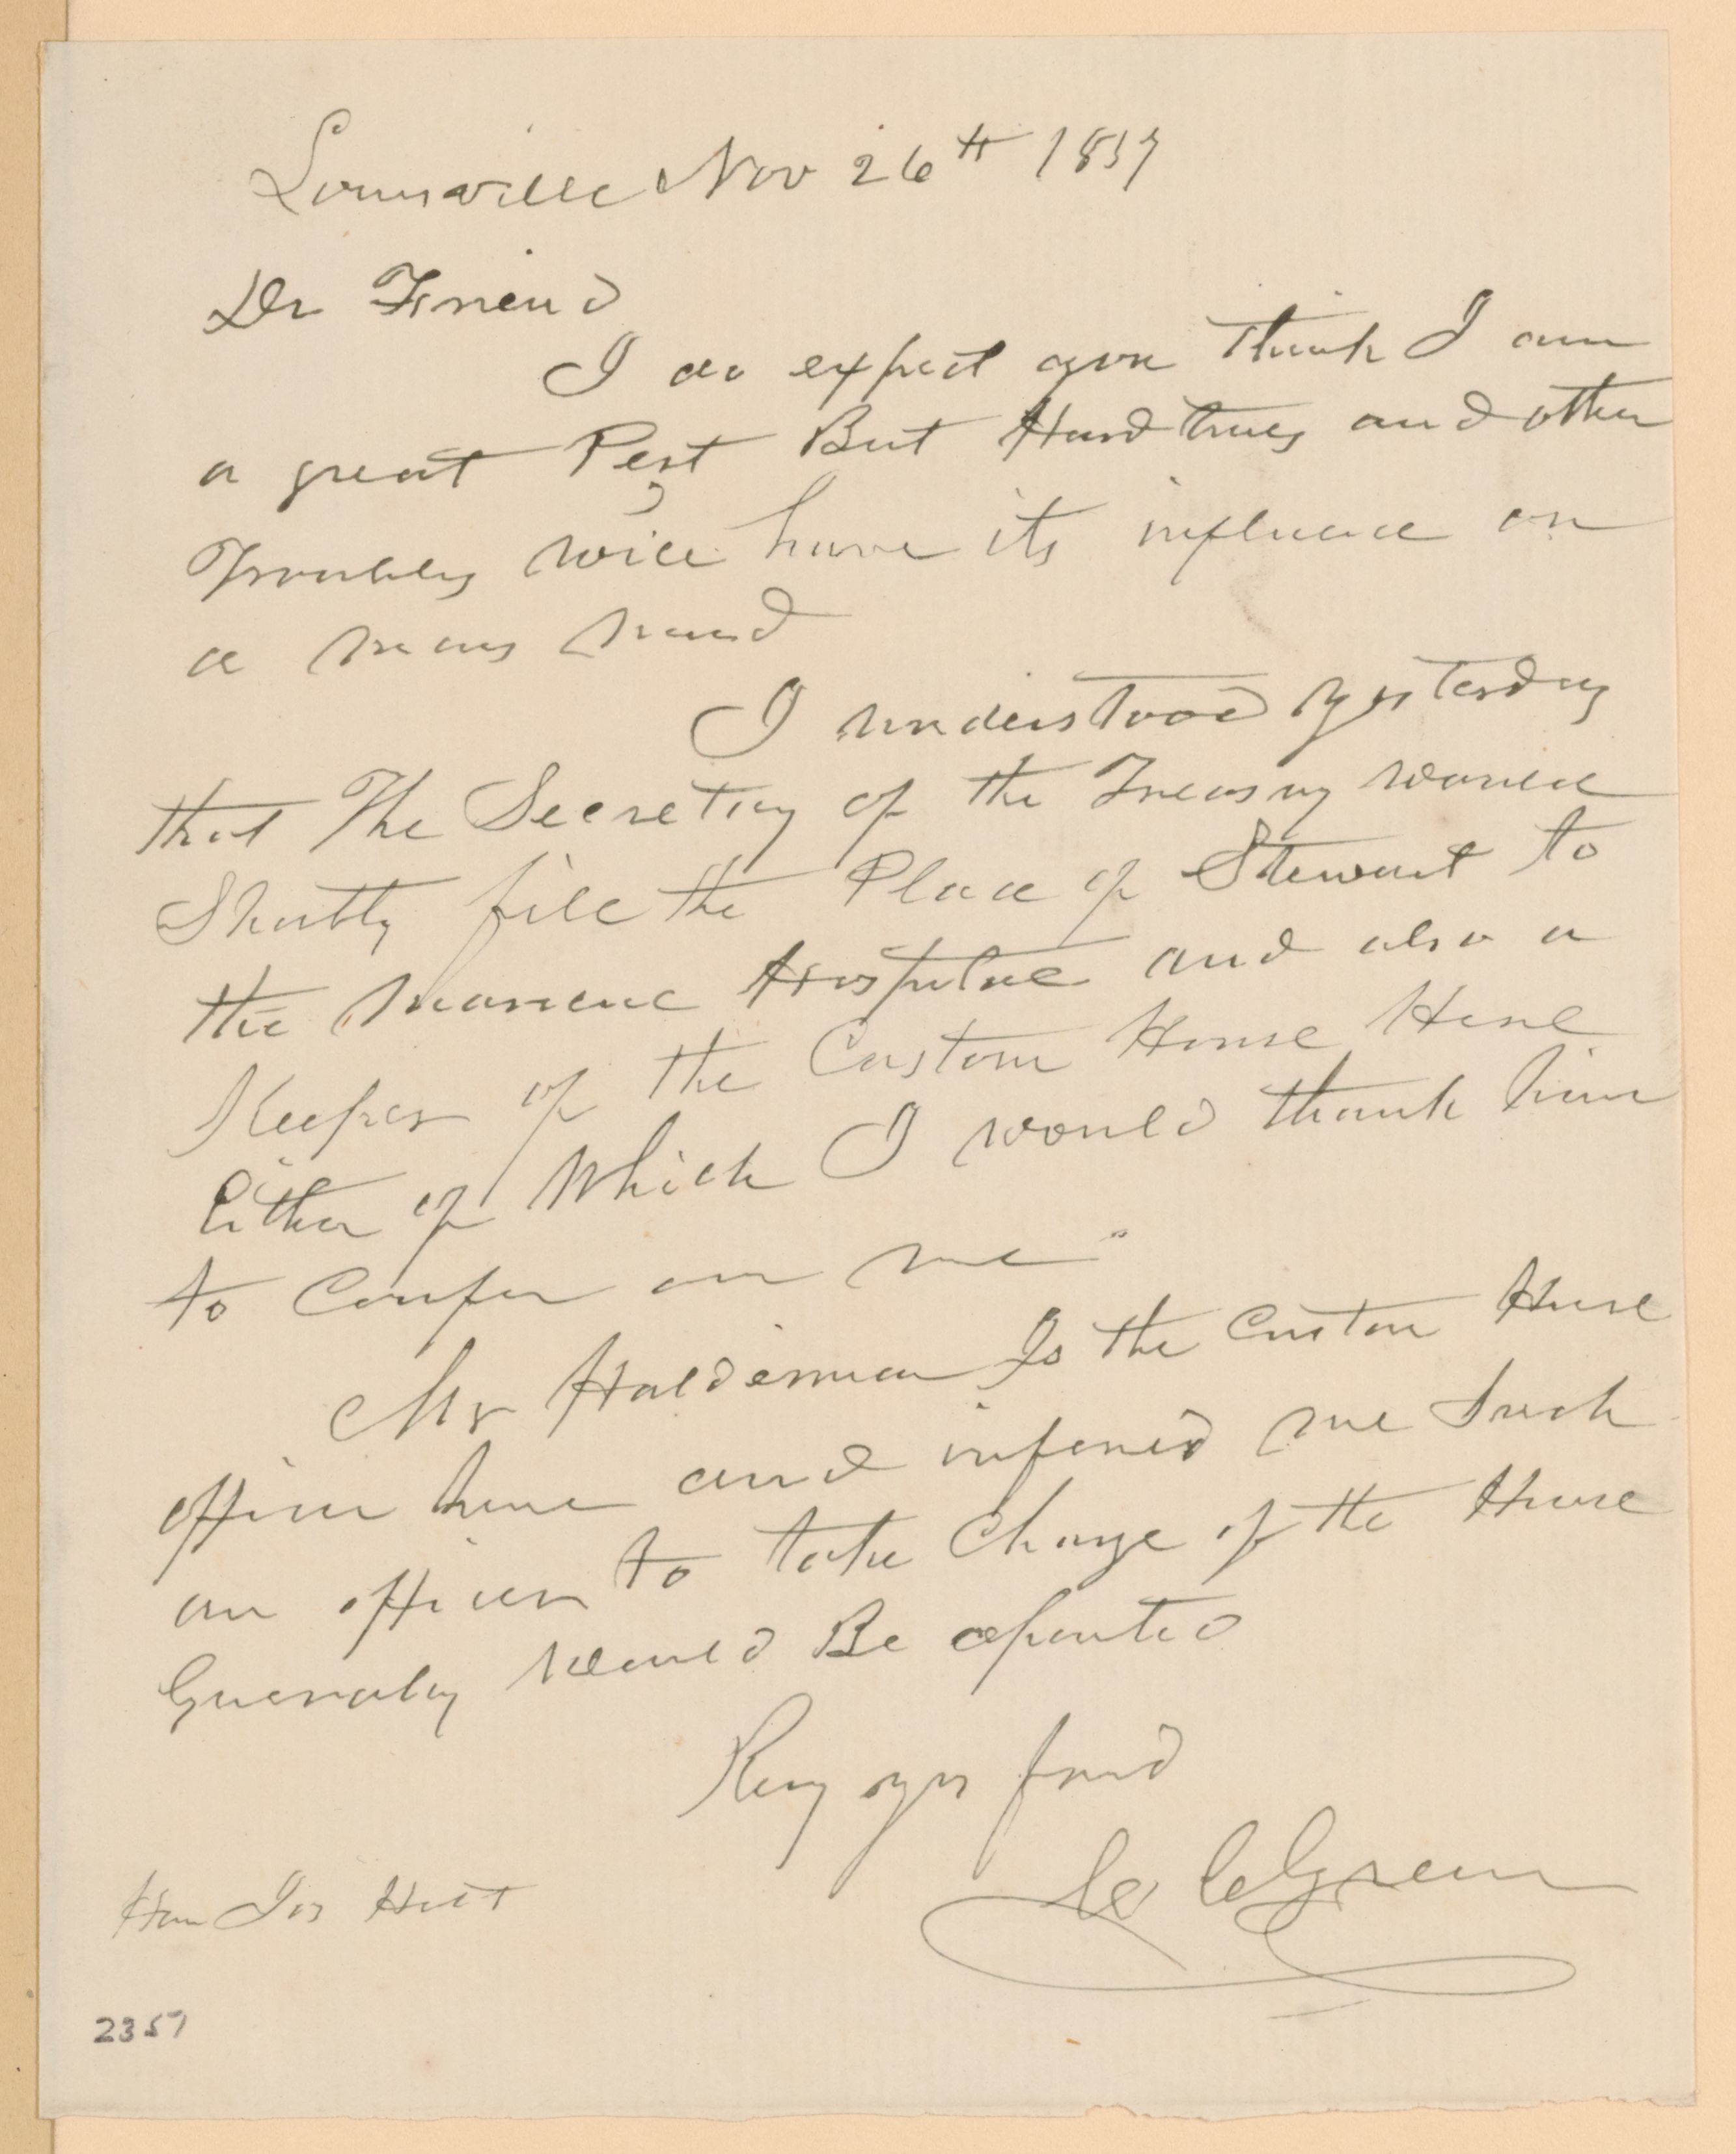 Louisville Nov 26th 1857
Dr Friend
I do expect you think I am
a great Pest But Hard times and other
Troubles will have its influence on
a mans mind
I understood yesterday
that The Secretary of the Treasury would
Shortly fill the Place of Stewart to
the Marine Hospital and also a
Keeper of the Custom House Here
Either of Which I would thank him
to Confer on me
Mr Halderman Is the Custom House
officer here and informed me Such
an officer to take Charge of the House
Generaly Would Be apointed
yr frind
Green
Hon Jos Holt
2357